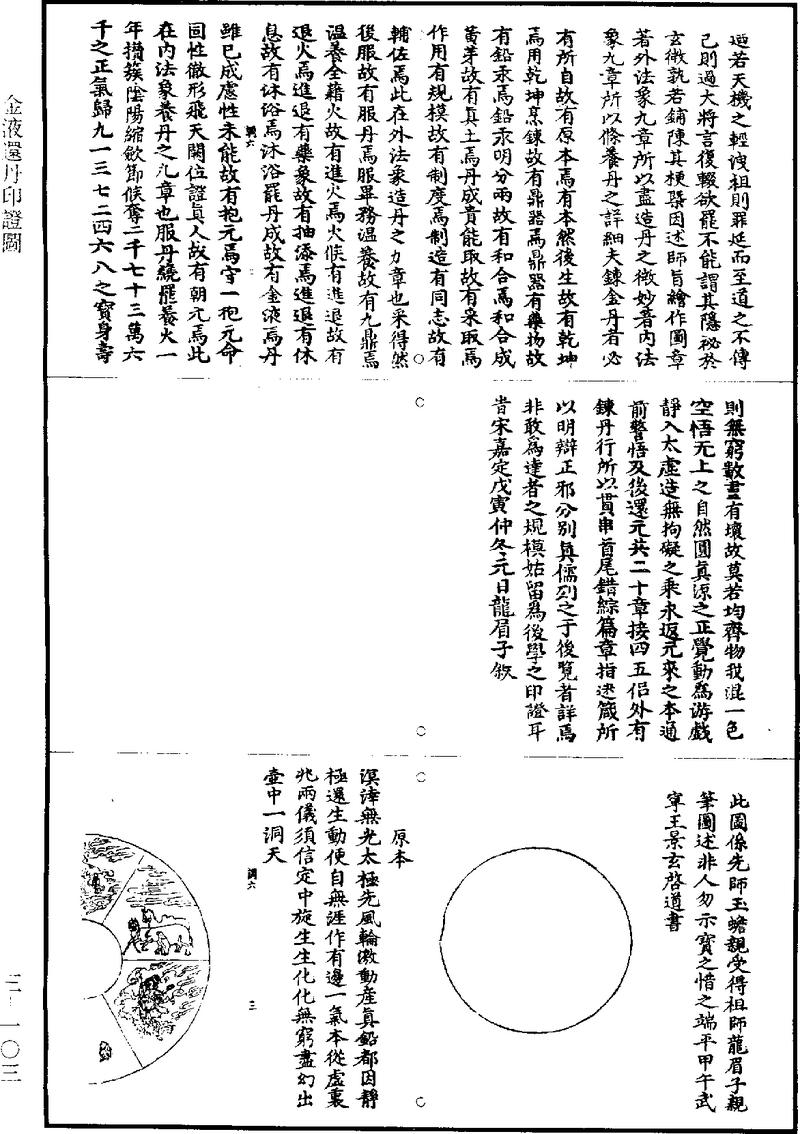 迺若天機之輕洩祖則罪延而至道之不傳
己則過大將言復輟欲罷不能謂其隱祕於
玄微孰若鋪陳其梗槩因述師旨繪作圖章
著外法象九章所以盡造丹之微妙著內法
象九章所以條養丹之詳細夫鍊金丹者必
有所自故有原本焉有本然後生故有乾坤
焉用乾坤烹鍊故有鼎器焉鼎器有藥物故
有鉛汞焉鉛汞明分兩故有和合焉和合成
黄芽故有真土焉丹成貴能取故有采取焉
作用有規模故有制度焉制造有同志故有
輔佐焉此在外法象造丹之九章也采得然
後服故有服丹焉服畢務溫養故有九鼎焉
溫養全藉火故有進火焉火候有進退故有
退火焉進退有藥象故有抽添焉進退有休
息故有沐浴焉沐浴罷丹成故有金液焉丹
調六
雖已成慮性未能故有抱元焉守一抱元命
固性徹形飛天闕位證真人故有朝元焉此
在內法象養丹之九章也服丹纔罷養火一
年攢簇陰陽縮歛節候奪二千七十三萬六
千之正氣歸九一三七二四六八之寶身壽
則無窮數盡有壞故莫若均齊物我混一色
空悟无上之自然圓真源之正覺動爲游戲
靜入太虛造無拘礙之乘永返元來之本通
前警悟及後還元共二十章接四五侣外有
鍊丹行所以貫串首尾錯綜篇章指迷箴所
以明辯正邪分別真僞列之于後覽者詳焉
非敢爲達者之規模姑留爲後學之印證耳
旹宋嘉定戊寅仲冬元日龍眉子敘
此圖係先師玉蟾親受得祖師龍眉子親
筆圖述非人勿示寶之惜之端平甲午武
寧王景玄啓道書
原本
溟涬無光太極先風輪激動產真鉛都因靜
極還生動便自無涯作有邊一氣本從虛裏
兆兩儀須信定中旋生生化化無窮盡幻出
壺中一洞天
調六
三
金液還丹印證圖
三-一〇三